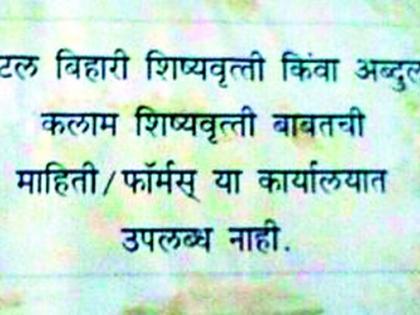 टल बिहारी शिष्यवृत्ती किंवा अब्दुल
कलाम शिष्यवृत्ती बाबतची
माहिती/फॉर्मस् या कार्यालयात
उपलब्ध नाही.